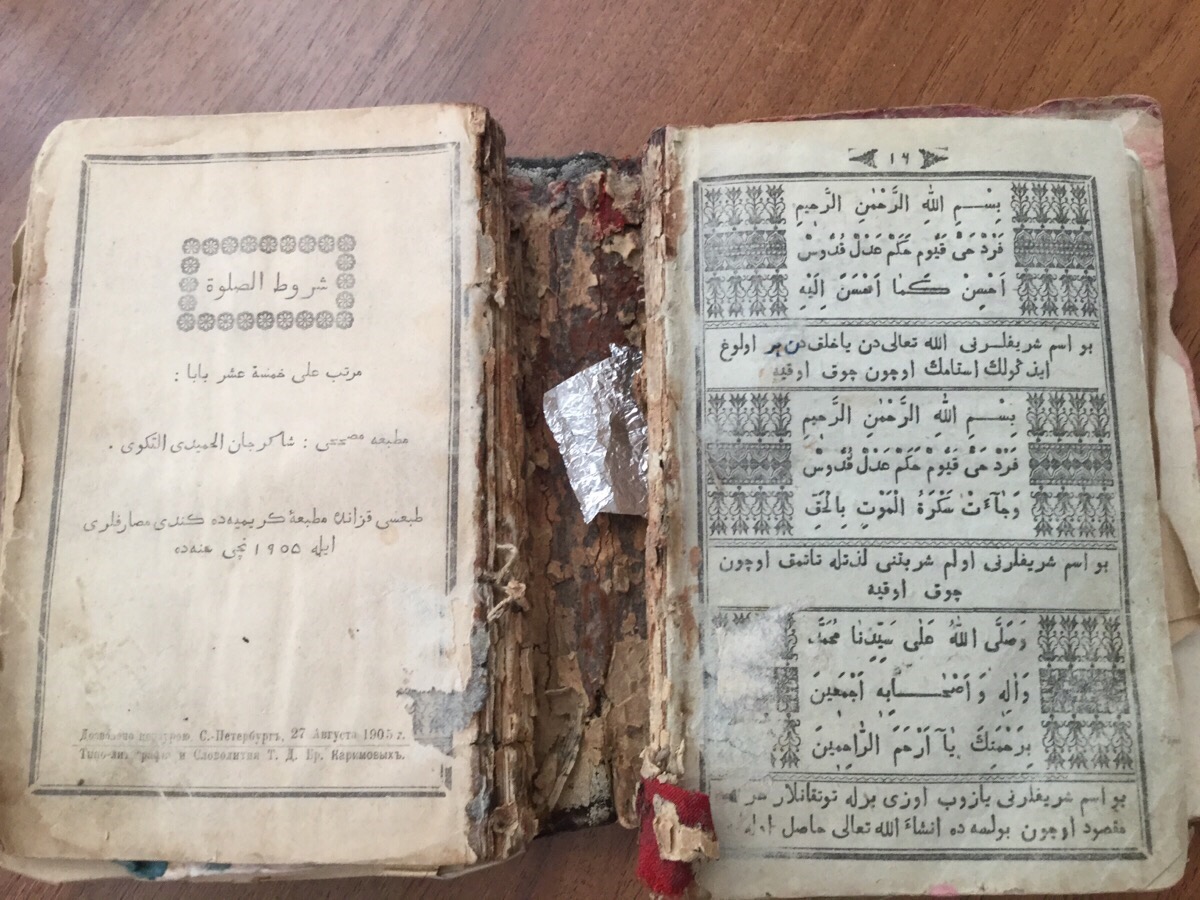 شروط الصلوة
مرتب على خمسة عشر بابا :
مطبعه مصححى : شاكرجان الحميدى التكوى .
طبعسى قزانده مطبعهٔ كريميه‌ده كندى مصارفلرى
ايله ١٩٥٥ نچى سنه‌ده
Дозволено цензурою, С.-Петербургъ, 27 Августа 1905 г.
Типо-литографія и Словолитня Т. Д. Бр. Каримовыхъ.
١٦
بِسْمِ اللهِ الرَّحْمٰنِ الرَّحِيمِ
فَرْدٌ حَىٌّ قَيُّومٌ حَكَمٌ عَدْلٌ قُدُّوسٌ
اَحْسِنْ كَمَا اَحْسَنَ اِلَيْهِ
بو اسم شريفلرنى الله تعالى‌دن يا خلق‌دن بر اولوغ
ايذكولك استامك اوچون چوق اوقيه
بِسْمِ اللهِ الرَّحْمٰنِ الرَّحِيمِ
فَرْدٌ حَىٌّ قَيُّومٌ حَكَمٌ عَدْلٌ قُدُّوسٌ
وَجَآءَتْ سَكْرَةُ الْمَوْتِ بِالْحَقِّ
بو اسم شريفلرنى اولم شربتنى لذتله تاتمق اوچون
چوق اوقيه
وَصَلَّى اللهُ عَلَى سَيِّدِنَا مُحَمَّدٍ
وَاٰلِهِ وَاَصْحَابِهِ اَجْمَعِينَ
بِرَحْمَتِكَ يَآ اَرْحَمَ الرَّاحِمِينَ
بو اسم شريفلرنى يازوب اوزى بزله توتقانلار هر
مقصود اوچون بولسه ده انشاء الله تعالى حاصل